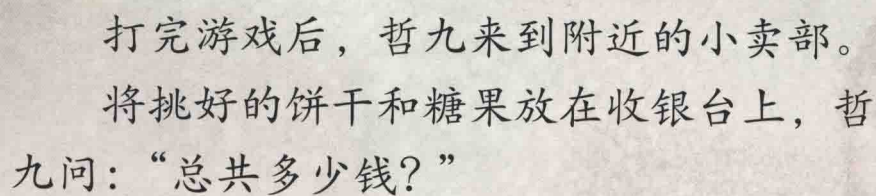 打完游戏后，哲九来到附近的小卖部。
将挑好的饼干和糖果放在收银台上，哲
九问：“总共多少钱？”